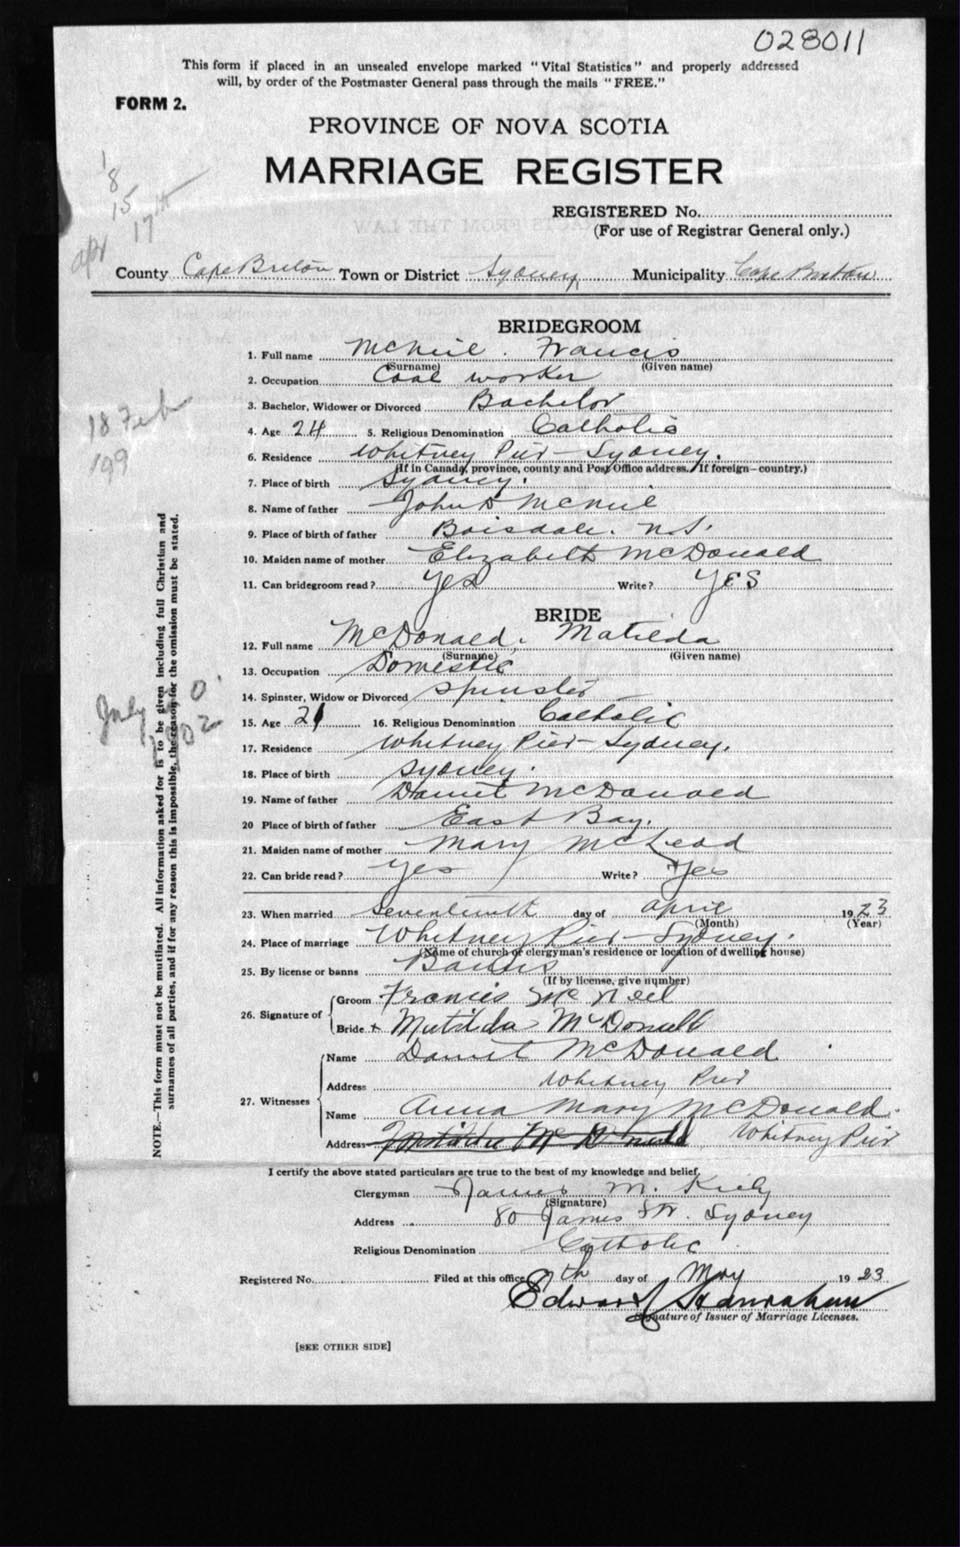 028011
This form if placed in an unsealed envelope marked "Vital Statistics" and properly addressed
will, by order of the Postmaster General pass through the mails "FREE."
FORM 2.
PROVINCE OF NOVA SCOTIA
MARRIAGE REGISTER
REGISTERED No.
(For use of Registrar General only.)
18
15
apr 17th
County Cape Breton Town or District Sydney Municipality Cape Breton
BRIDEGROOM
1. Full name McNeil. Francis
(Surname) (Given name)
2. Occupation Coal worker
3. Bachelor, Widower or Divorced Bachelor
4. Age 24 5. Religious Denomination Catholic
6. Residence Whitney Pier - Sydney.
(If in Canada, province, county and Post Office address. If foreign—country.)
7. Place of birth Sydney.
8. Name of father John D McNeil
9. Place of birth of father Boisdale. N.S.
10. Maiden name of mother Elizabeth McDonald
11. Can bridegroom read? Yes Write? YES
18 Feb
199
BRIDE
12. Full name McDonald. Matilda
(Surname) (Given name)
13. Occupation Domestic
14. Spinster, Widow or Divorced Spinster
15. Age 21 16. Religious Denomination Catholic
17. Residence Whitney Pier - Sydney.
18. Place of birth Sydney.
19. Name of father Daniel McDonald
20 Place of birth of father East Bay.
21. Maiden name of mother Mary McLeod
22. Can bride read? Yes Write? Yes
July
1902
NOTE.—This form must not be mutilated. All information asked for is to be given including full Christian and
surnames of all parties, and if for any reason this is impossible, the reason for the omission must be stated.
23. When married Seventeenth day of April 1923
(Month) (Year)
24. Place of marriage Whitney Pier - Sydney.
(Name of church or clergyman's residence or location of dwelling house)
25. By license or banns Banns
(If by license, give number)
26. Signature of
Groom Francis McNeil
Bride x Matilda McDonald
27. Witnesses
Name Daniel McDonald
Address Whitney Pier
Name Anna Mary McDonald.
Address Matilda McDonald Whitney Pier
I certify the above stated particulars are true to the best of my knowledge and belief.
Clergyman James M. Kiely
(Signature)
Address 80 James St. Sydney
Religious Denomination Catholic
Registered No. Filed at this office 7th day of May 1923
Edward Hanrahan
Signature of Issuer of Marriage Licenses.
[SEE OTHER SIDE]